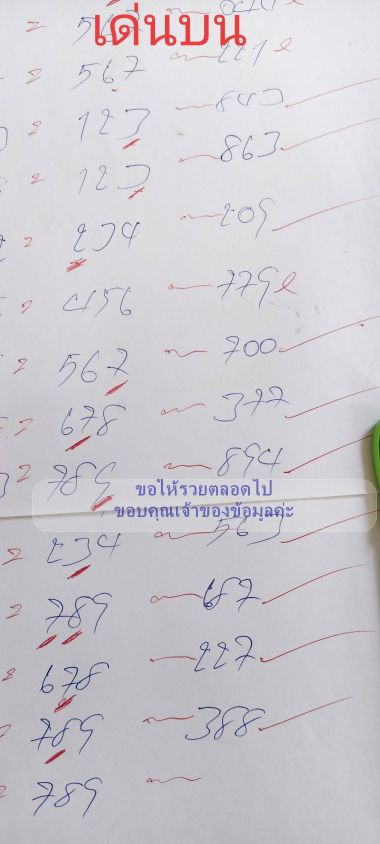 เด่นบน
2 567 221 ℓ
2 123 843
2 123 863
2 234 209
456 779 ℓ
2 567 700
2 678 377
2 789 894
ขอให้รวยตลอดไป
ขอบคุณเจ้าของข้อมูลค่ะ
2 234 563
2 789 687
2 678 227
789 388
2 789